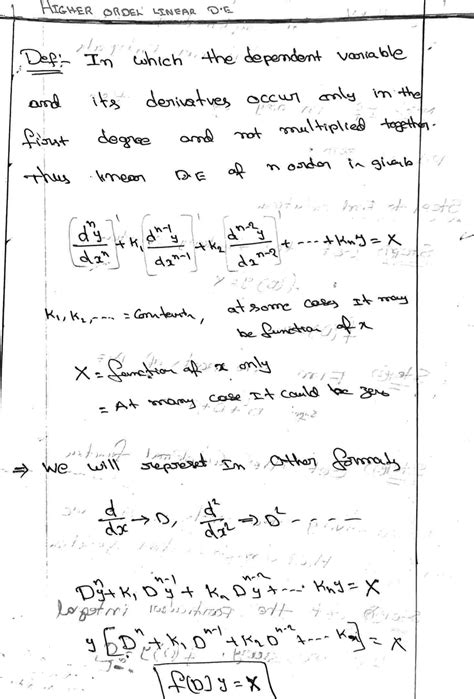 HIGHER ORDER LINEAR D.E
Def:- In which the dependent variable
and its derivatves occur only in the
first degree and not multiplied together.
Thus linear D.E of n order is given
[dⁿy/dxⁿ]¹ + K₁ [dⁿ⁻¹y/dxⁿ⁻¹] + K₂ [dⁿ⁻²y/dxⁿ⁻²] + ---- + Kₙy = X
K₁, K₂, ---- = Constants, at some cases It may
be function of x
X = function of x only
= At many case It could be zero
⇒ We will represet In other formats
d/dx → D, d²/dx² ⇒ D² - - - -
Dⁿy + K₁ Dⁿ⁻¹y + Kₙ Dⁿ⁻²y + ---- Kₙy = X
y [Dⁿ + K₁ Dⁿ⁻¹ + K₂ Dⁿ⁻² + ---- Kₙ] = X
f(D) y = X